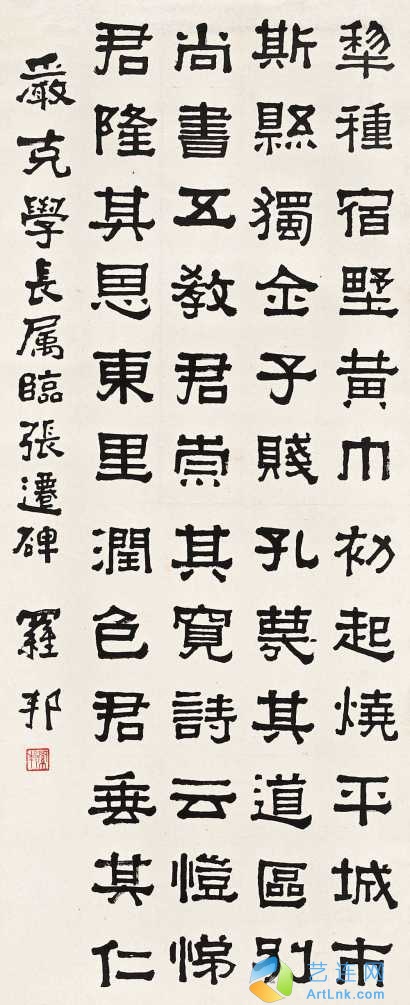 犂種宿墅黃巾初起燒平城市
斯縣獨全子賤孔蔑其道區別
尚書五教君崇其寬詩云愷悌
君隆其恩東里潤色君垂其仁
嚴克學長属臨張遷碑 羅邦
艺连网
ArtLnk.com